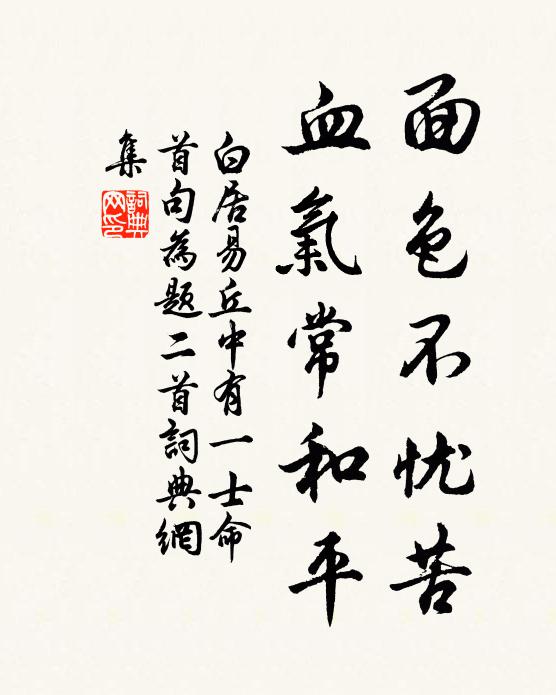 面色不忧苦
血氣常和平
白居易丘中有一士命
首句為题二首詞典網
集
詞典网印